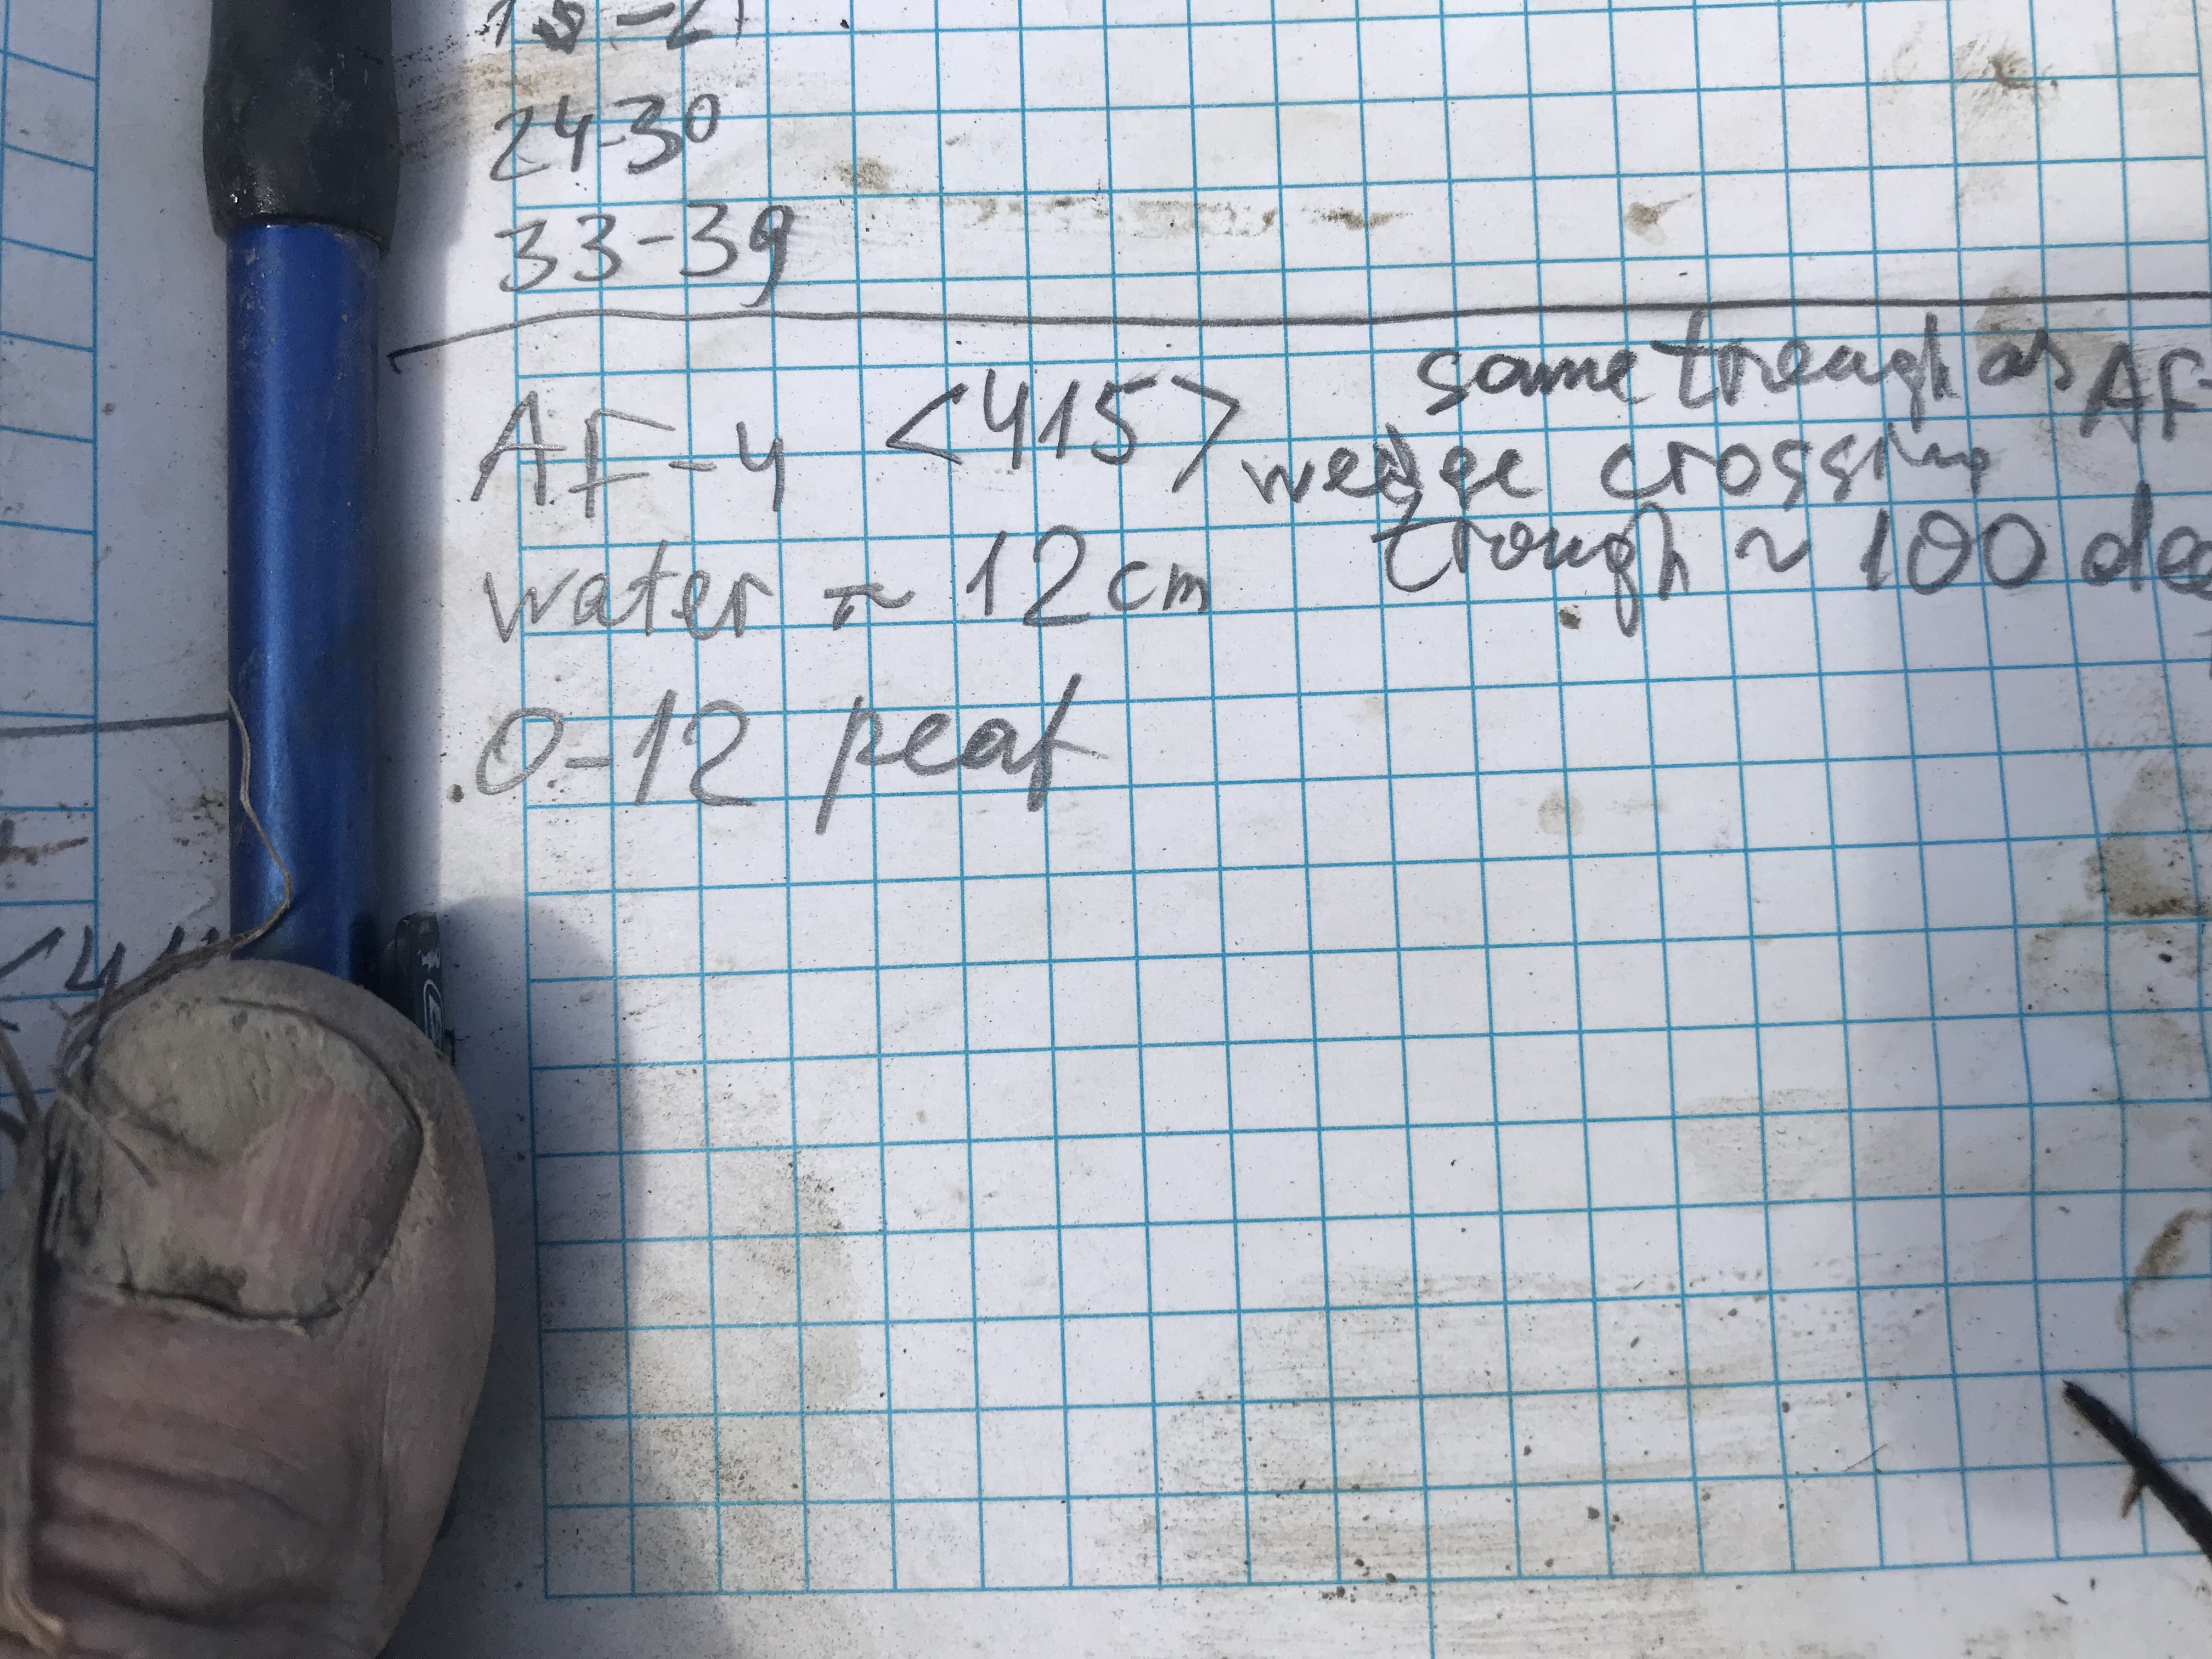 24-30
33-39
AF-4 <415> same trough as AF-
wedge crossing
trough ~ 100 deg
water ≈ 12 cm
0-12 peat
<44